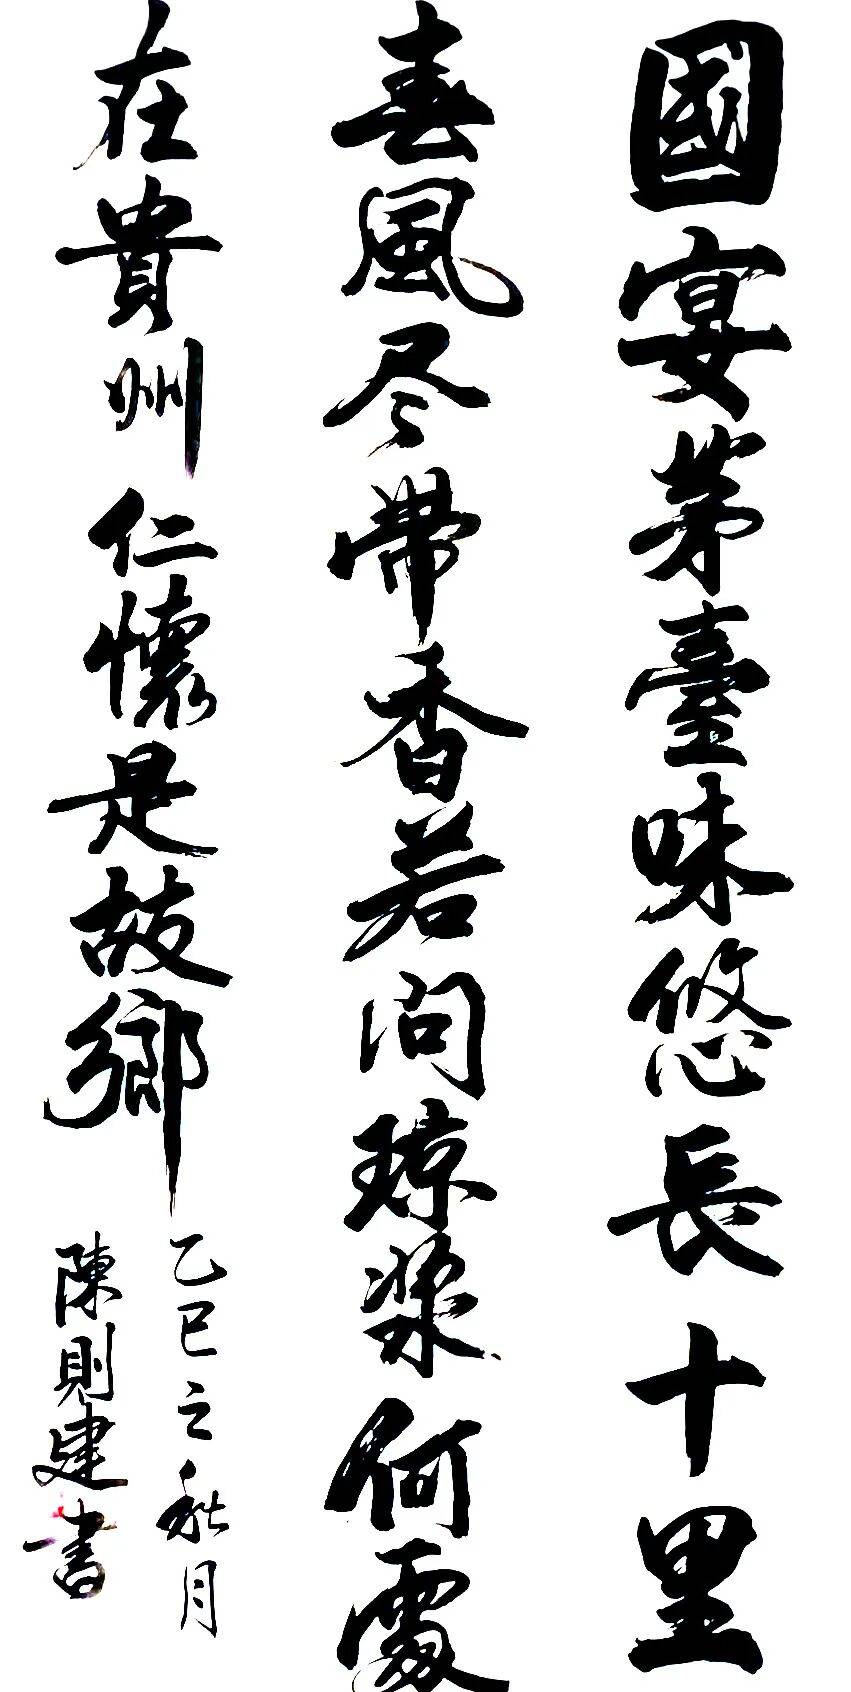 國宴茅臺味悠長十里
春風尽帶香若问瓊漿何處
在貴州仁懷是故鄉
乙巳之秋月
陳則建書